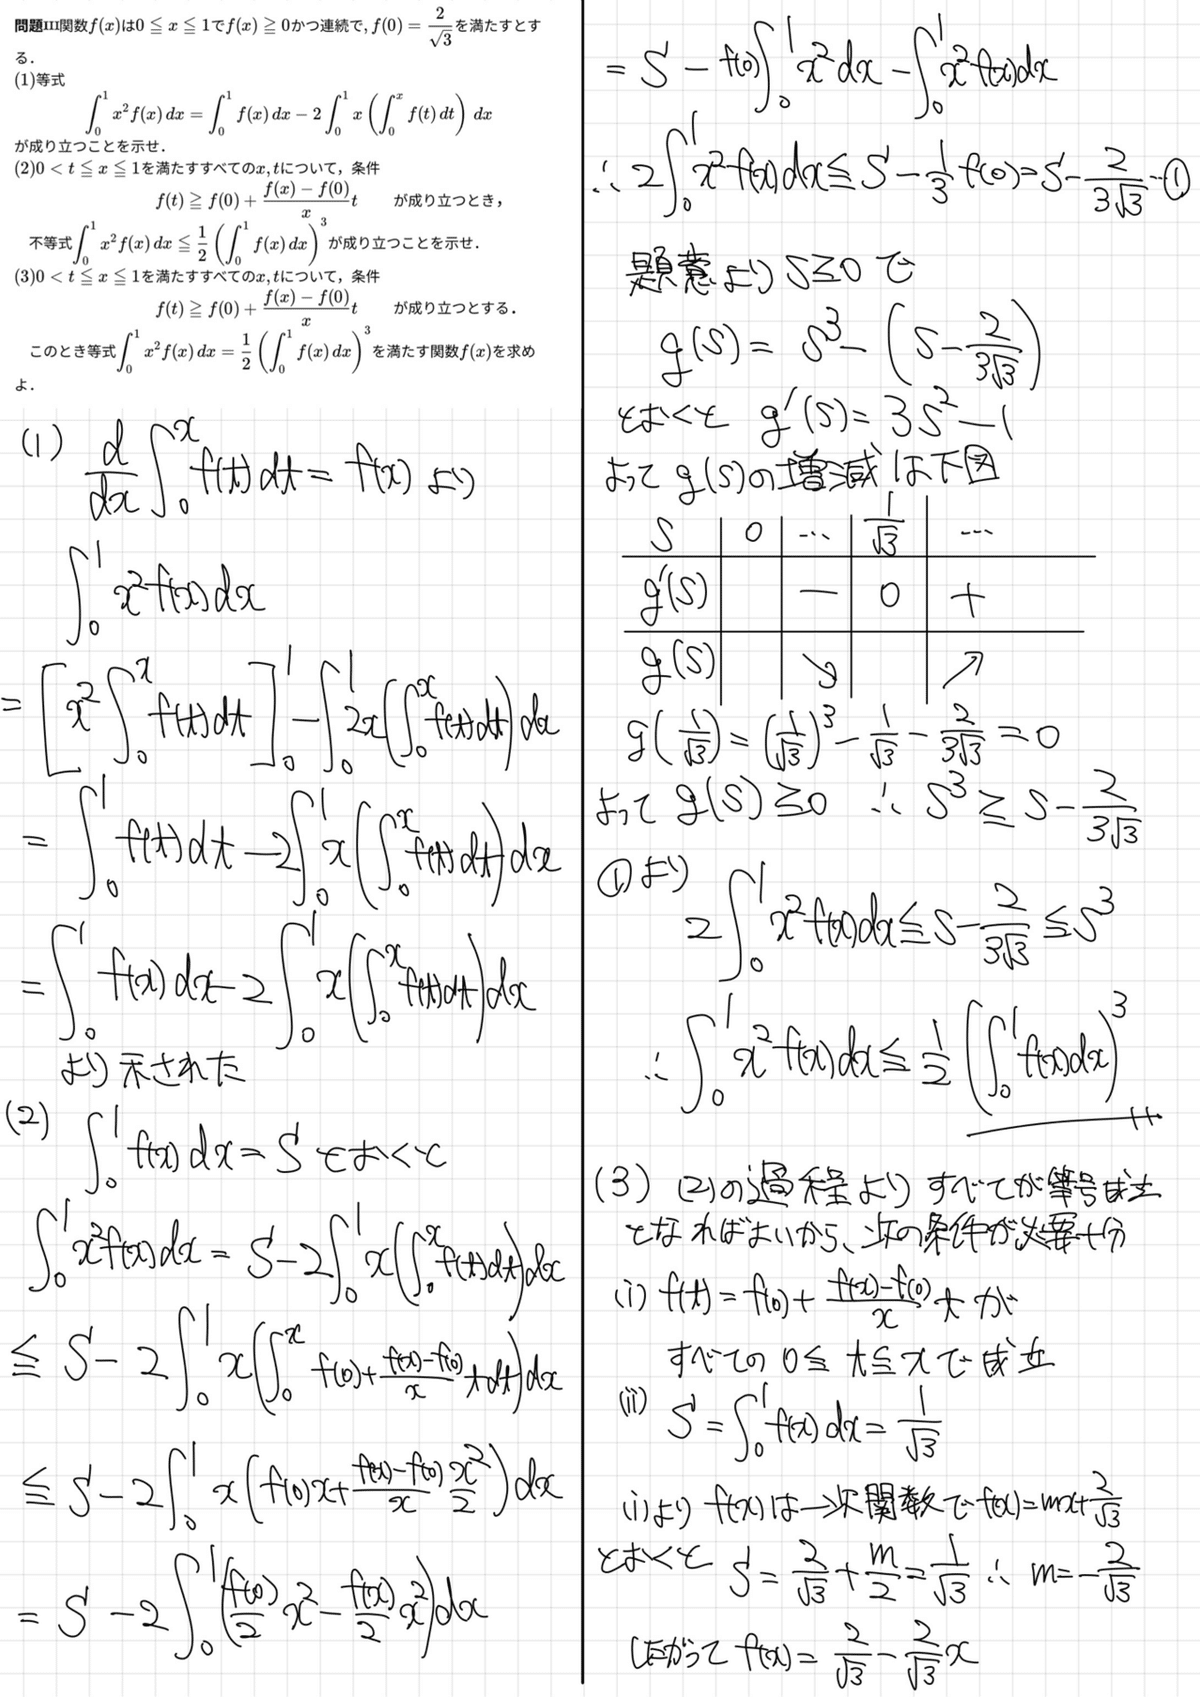 問題III関数f(x)は0 ≦ x ≦ 1でf(x) ≧ 0かつ連続で, f(0) = 2/√3 を満たすとす
る．
(1)等式
∫_0^1 x² f(x) dx = ∫_0^1 f(x) dx − 2∫_0^1 x (∫_0^x f(t) dt) dx
が成り立つことを示せ．
(2)0 < t ≦ x ≦ 1を満たすすべてのx, tについて，条件
f(t) ≧ f(0) + (f(x) − f(0))/x t が成り立つとき，
不等式∫_0^1 x² f(x) dx ≦ 1/2 (∫_0^1 f(x) dx)^3 が成り立つことを示せ．
(3)0 < t ≦ x ≦ 1を満たすすべてのx, tについて，条件
f(t) ≧ f(0) + (f(x) − f(0))/x t が成り立つとする．
このとき等式∫_0^1 x² f(x) dx = 1/2 (∫_0^1 f(x) dx)^3 を満たす関数f(x)を求め
よ．
(1) d/dx ∫_0^x f(t) dt = f(x) より
∫_0^1 x² f(x) dx
= [x² ∫_0^x f(t) dt]_0^1 − ∫_0^1 2x (∫_0^x f(t) dt) dx
= ∫_0^1 f(t) dt − 2∫_0^1 x (∫_0^x f(t) dt) dx
= ∫_0^1 f(x) dx − 2∫_0^1 x (∫_0^x f(t) dt) dx
より示された
(2) ∫_0^1 f(x) dx = S とおくと
∫_0^1 x² f(x) dx = S − 2∫_0^1 x (∫_0^x f(t) dt) dx
≦ S − 2∫_0^1 x (∫_0^x f(0) + (f(x)−f(0))/x t dt) dx
≦ S − 2∫_0^1 x (f(0)x + (f(x)−f(0))/x x²/2) dx
= S − 2∫_0^1 (f(0)/2 x² − f(x)/2 x²) dx
= S − f(0)∫_0^1 x² dx − ∫_0^1 x² f(x) dx
∴ 2∫_0^1 x² f(x) dx ≦ S − 1/3 f(0) = S − 2/(3√3) … ①
題意より S≧0 で
g(S) = S³ − (S − 2/(3√3))
とおくと g'(S) = 3S² − 1
よって g(S)の増減は下図
S 0 … 1/√3 …
g'(S) − 0 +
g(S) ↘ ↗
g(1/√3) = (1/√3)³ − 1/√3 − 2/(3√3) = 0
よって g(S) ≧ 0 ∴ S³ ≧ S − 2/(3√3)
①より
2∫_0^1 x² f(x) dx ≦ S − 2/(3√3) ≦ S³
∴ ∫_0^1 x² f(x) dx ≦ 1/2 (∫_0^1 f(x) dx)^3
(3) (2)の過程よりすべてが等号成立
となればよいから、次の条件が必要十分
(i) f(t) = f(0) + (f(x)−f(0))/x t が
すべての 0≦t≦xで成立
(ii) S = ∫_0^1 f(x) dx = 1/√3
(i)より f(x)は一次関数で f(x) = mx + 2/√3
とおくと S = 2/√3 + m/2 = 1/√3 ∴ m = −2/√3
したがって f(x) = 2/√3 − 2/√3 x